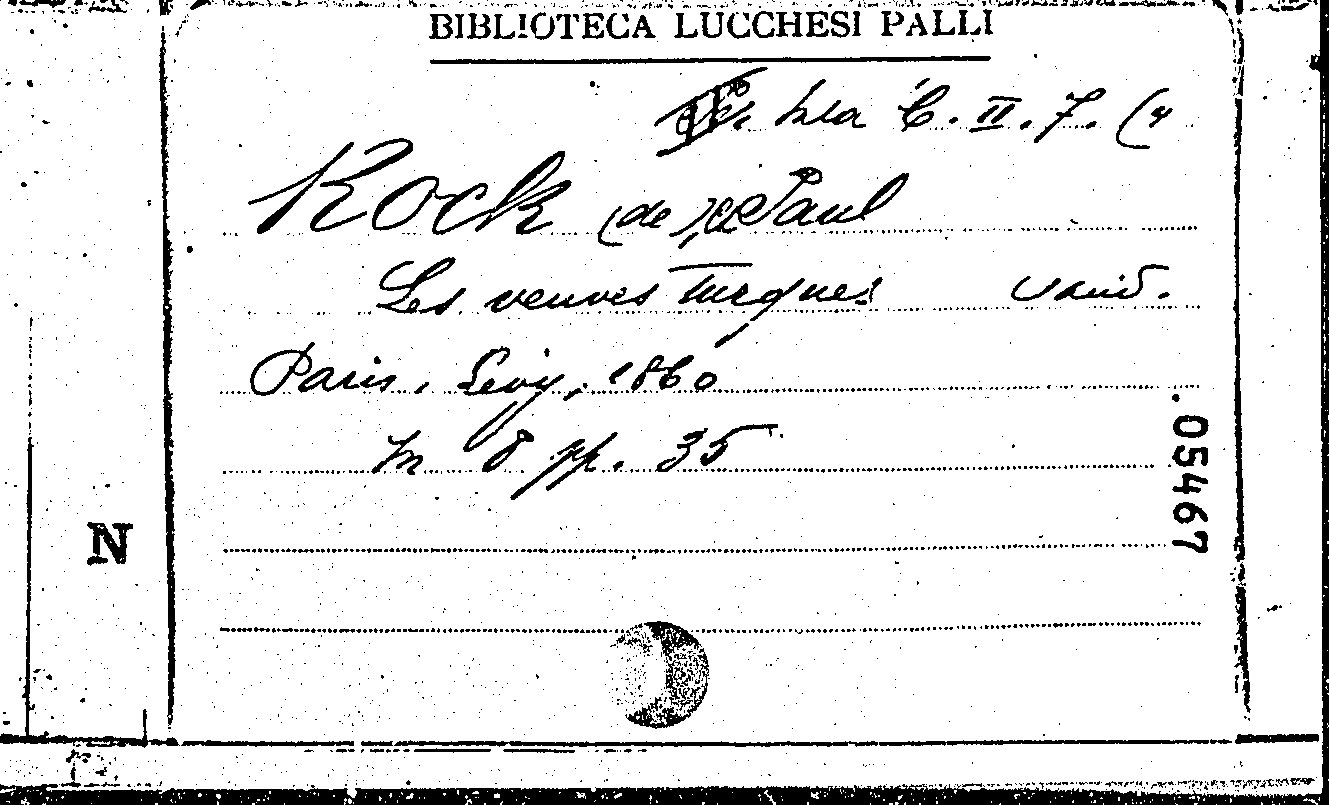 BIBLIOTECA LUCCHESI PALLI
C. II. 7. (4
Kock (de) Paul
Les veuves turques vaud.
Paris, Levy, 1860
In 8 pp. 35
05467
N